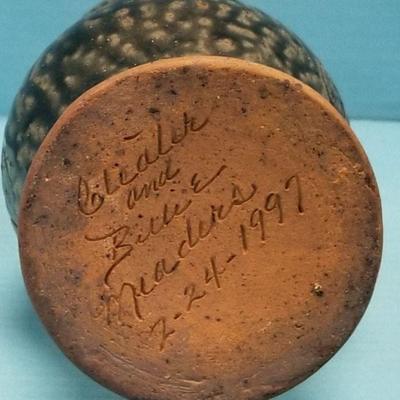 Cleater
and
Billie
Meaders
2-24-1997